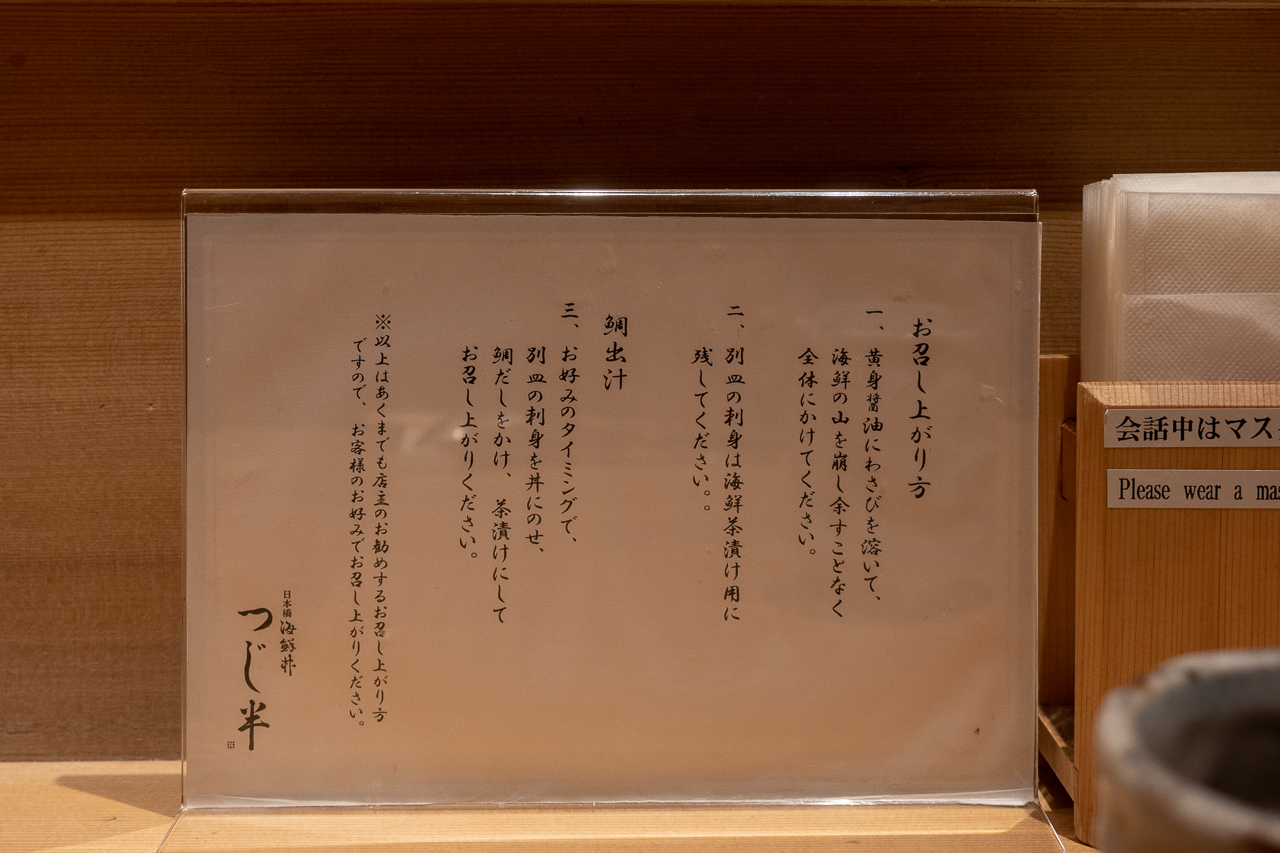 お召し上がり方
一、黄身醤油にわさびを溶いて、
海鮮の山を崩し余すことなく
全体にかけてください。
二、別皿の刺身は海鮮茶漬け用に
残してください。。
鯛出汁
三、お好みのタイミングで、
別皿の刺身を丼にのせ、
鯛だしをかけ、茶漬けにして
お召し上がりください。
※以上はあくまでも店主のお勧めするお召し上がり方
ですので、お客様のお好みでお召し上がりください。
日本橋 海鮮丼
つじ半
会話中はマス
Please wear a mas